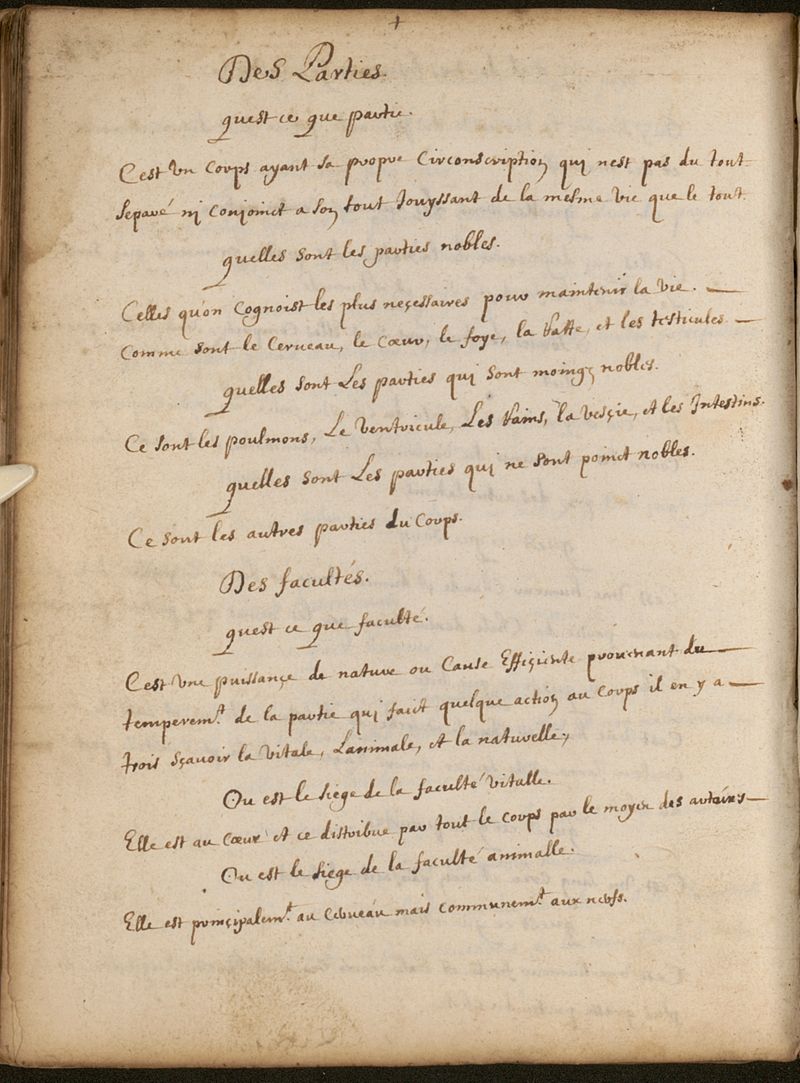 +
Des Parties.
quest ce que partie.
Cest vn Corps ayant sa propre Circonscription qui nest pas du tout
separé ni Conjoinct a son tout Jouyssant de la mesme vie que le tout.
quelles sont les parties nobles.
Celles qu'on Cognoist les plus neçessaires pour maintenir la vie. —
Comme sont le Cerueau, le Cœur, le foye, la Ratte, et les testicules —
quelles sont Les parties qui sont moings nobles.
Ce sont les poulmons, Le Ventricule, Les Rains, la vesçie, et les Intestins.
quelles sont Les parties qui ne sont poinct nobles.
Ce sont les autres parties du Corps.
Des facultés.
quest ce que faculté.
Cest vne puissançe de nature ou Cause Effiçiente prouenant du —
temperemt. de la partie qui faict quelque action au Corps il en y a —
trois sçauoir la vitale, Lanimale, et la naturelle,
Ou est le siege de la faculté vitalle.
Elle est au Cœur et ce distribue par tout le Corps par le moyen des artaires —
Ou est le siege de la faculté animalle.
Elle est prinçipalemt. au Cerueau mais communemt. aux nerfs.